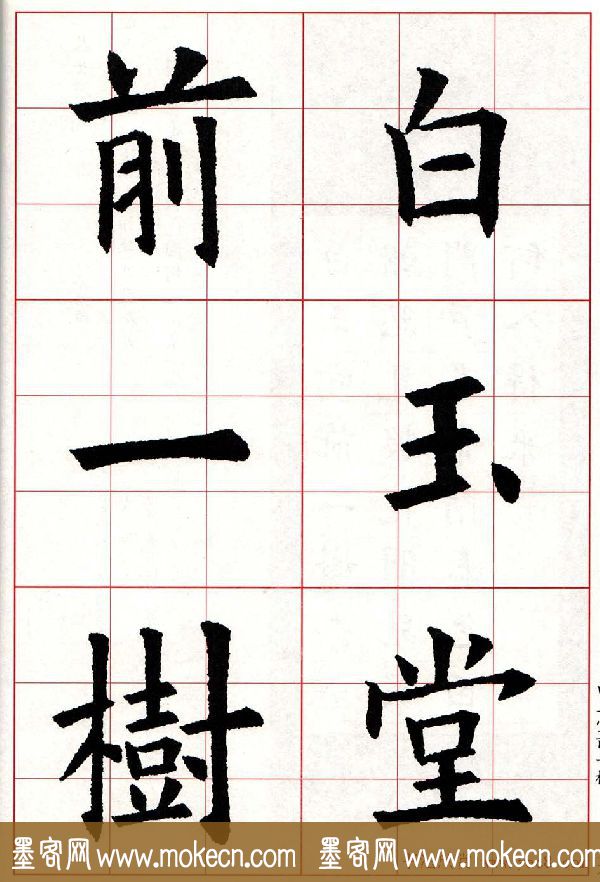 白玉堂
前一樹
墨客网 www.mokecn.com 墨客网 www.mokecn.com